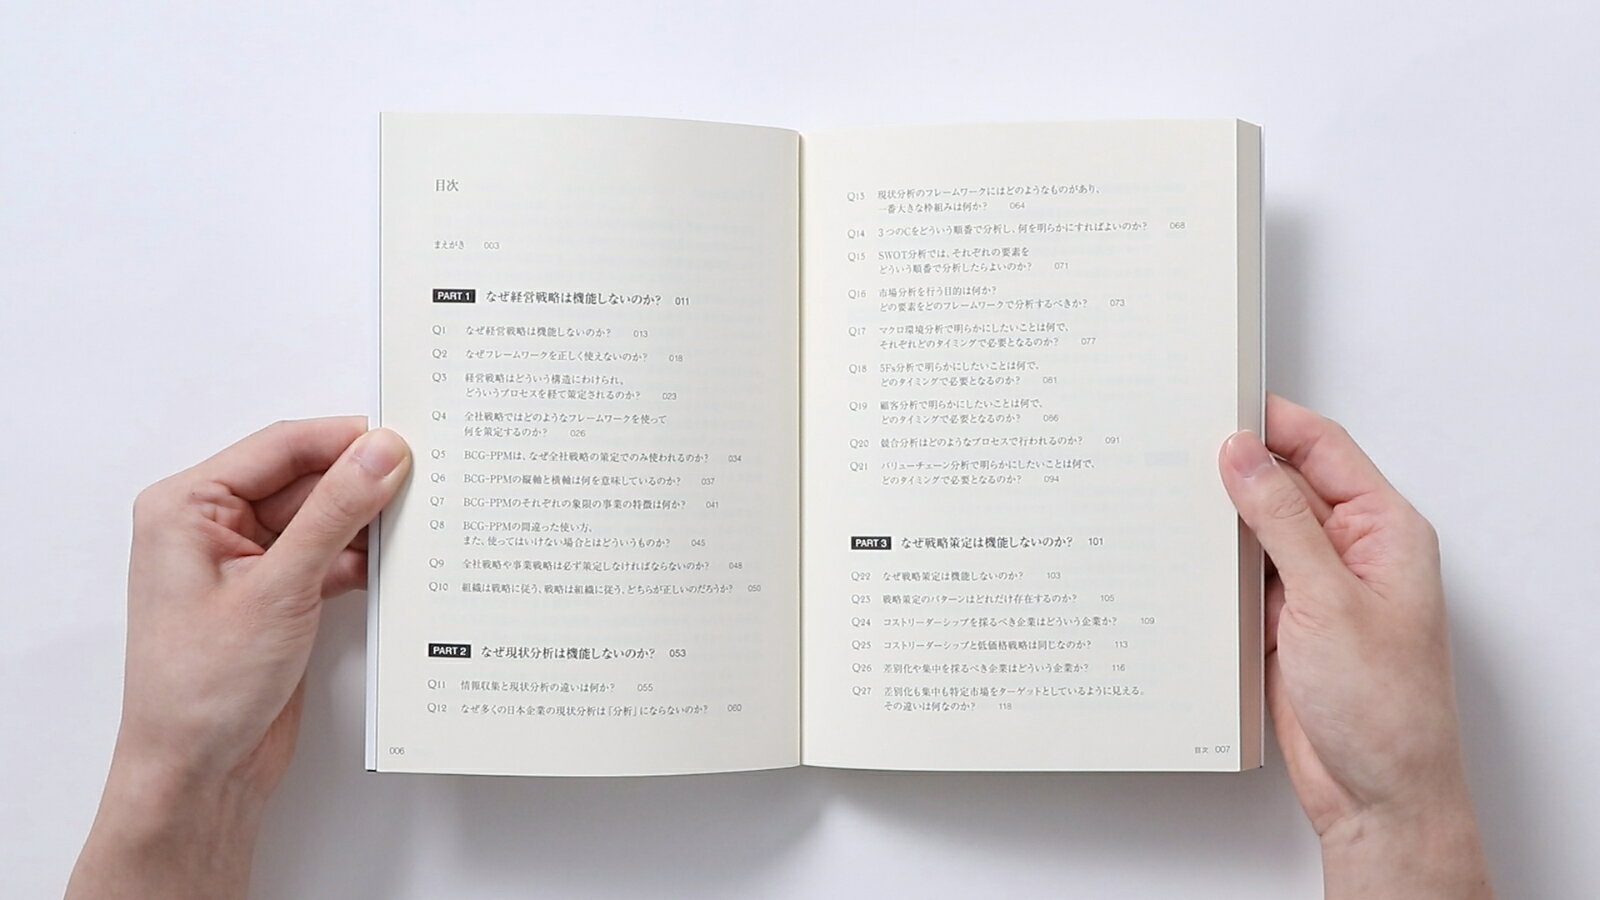 目次
まえがき 003
PART 1 なぜ経営戦略は機能しないのか? 011
Q1 なぜ経営戦略は機能しないのか? 013
Q2 なぜフレームワークを正しく使えないのか? 018
Q3 経営戦略はどういう構造にわけられ、
どういうプロセスを経て策定されるのか? 023
Q4 全社戦略ではどのようなフレームワークを使って
何を策定するのか? 026
Q5 BCG-PPMは、なぜ全社戦略の策定でのみ使われるのか? 034
Q6 BCG-PPMの縦軸と横軸は何を意味しているのか? 037
Q7 BCG-PPMのそれぞれの象限の事業の特徴は何か? 041
Q8 BCG-PPMの間違った使い方、
また、使ってはいけない場合とはどういうものか? 045
Q9 全社戦略や事業戦略は必ず策定しなければならないのか? 048
Q10 組織は戦略に従う、戦略は組織に従う、どちらが正しいのだろうか? 050
PART 2 なぜ現状分析は機能しないのか? 053
Q11 情報収集と現状分析の違いは何か? 055
Q12 なぜ多くの日本企業の現状分析は「分析」にならないのか? 060
006
Q13 現状分析のフレームワークにはどのようなものがあり、
一番大きな枠組みは何か? 064
Q14 3つのCをどういう順番で分析し、何を明らかにすればよいのか? 068
Q15 SWOT分析では、それぞれの要素を
どういう順番で分析したらよいのか? 071
Q16 市場分析を行う目的は何か?
どの要素をどのフレームワークで分析するべきか? 073
Q17 マクロ環境分析で明らかにしたいことは何で、
それぞれどのタイミングで必要となるのか? 077
Q18 5Fs分析で明らかにしたいことは何で、
どのタイミングで必要となるのか? 081
Q19 顧客分析で明らかにしたいことは何で、
どのタイミングで必要となるのか? 086
Q20 競合分析はどのようなプロセスで行われるのか? 091
Q21 バリューチェーン分析で明らかにしたいことは何で、
どのタイミングで必要となるのか? 094
PART 3 なぜ戦略策定は機能しないのか? 101
Q22 なぜ戦略策定は機能しないのか? 103
Q23 戦略策定のパターンはどれだけ存在するのか? 105
Q24 コストリーダーシップを採るべき企業はどういう企業か? 109
Q25 コストリーダーシップと低価格戦略は同じなのか? 113
Q26 差別化や集中を採るべき企業はどういう企業か? 116
Q27 差別化も集中も特定市場をターゲットとしているように見える。
その違いは何なのか? 118
目次 007